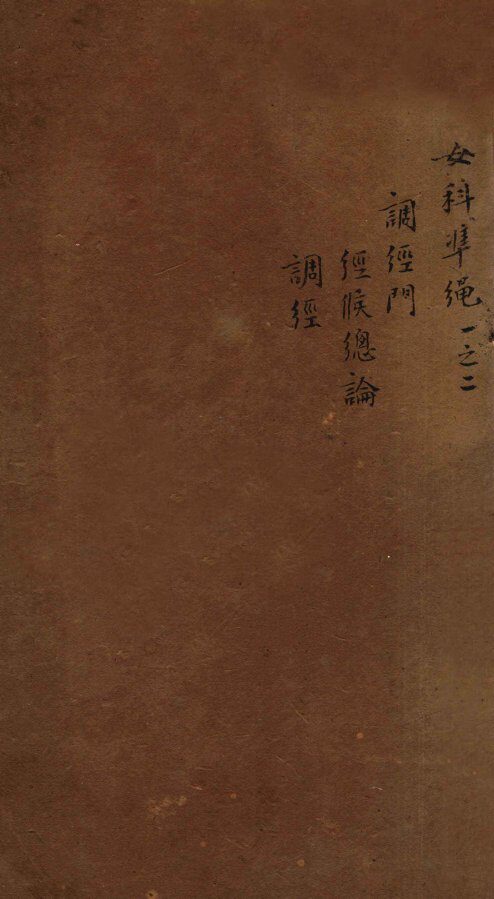 女科準绳一之二
調經門
經候總論
調經